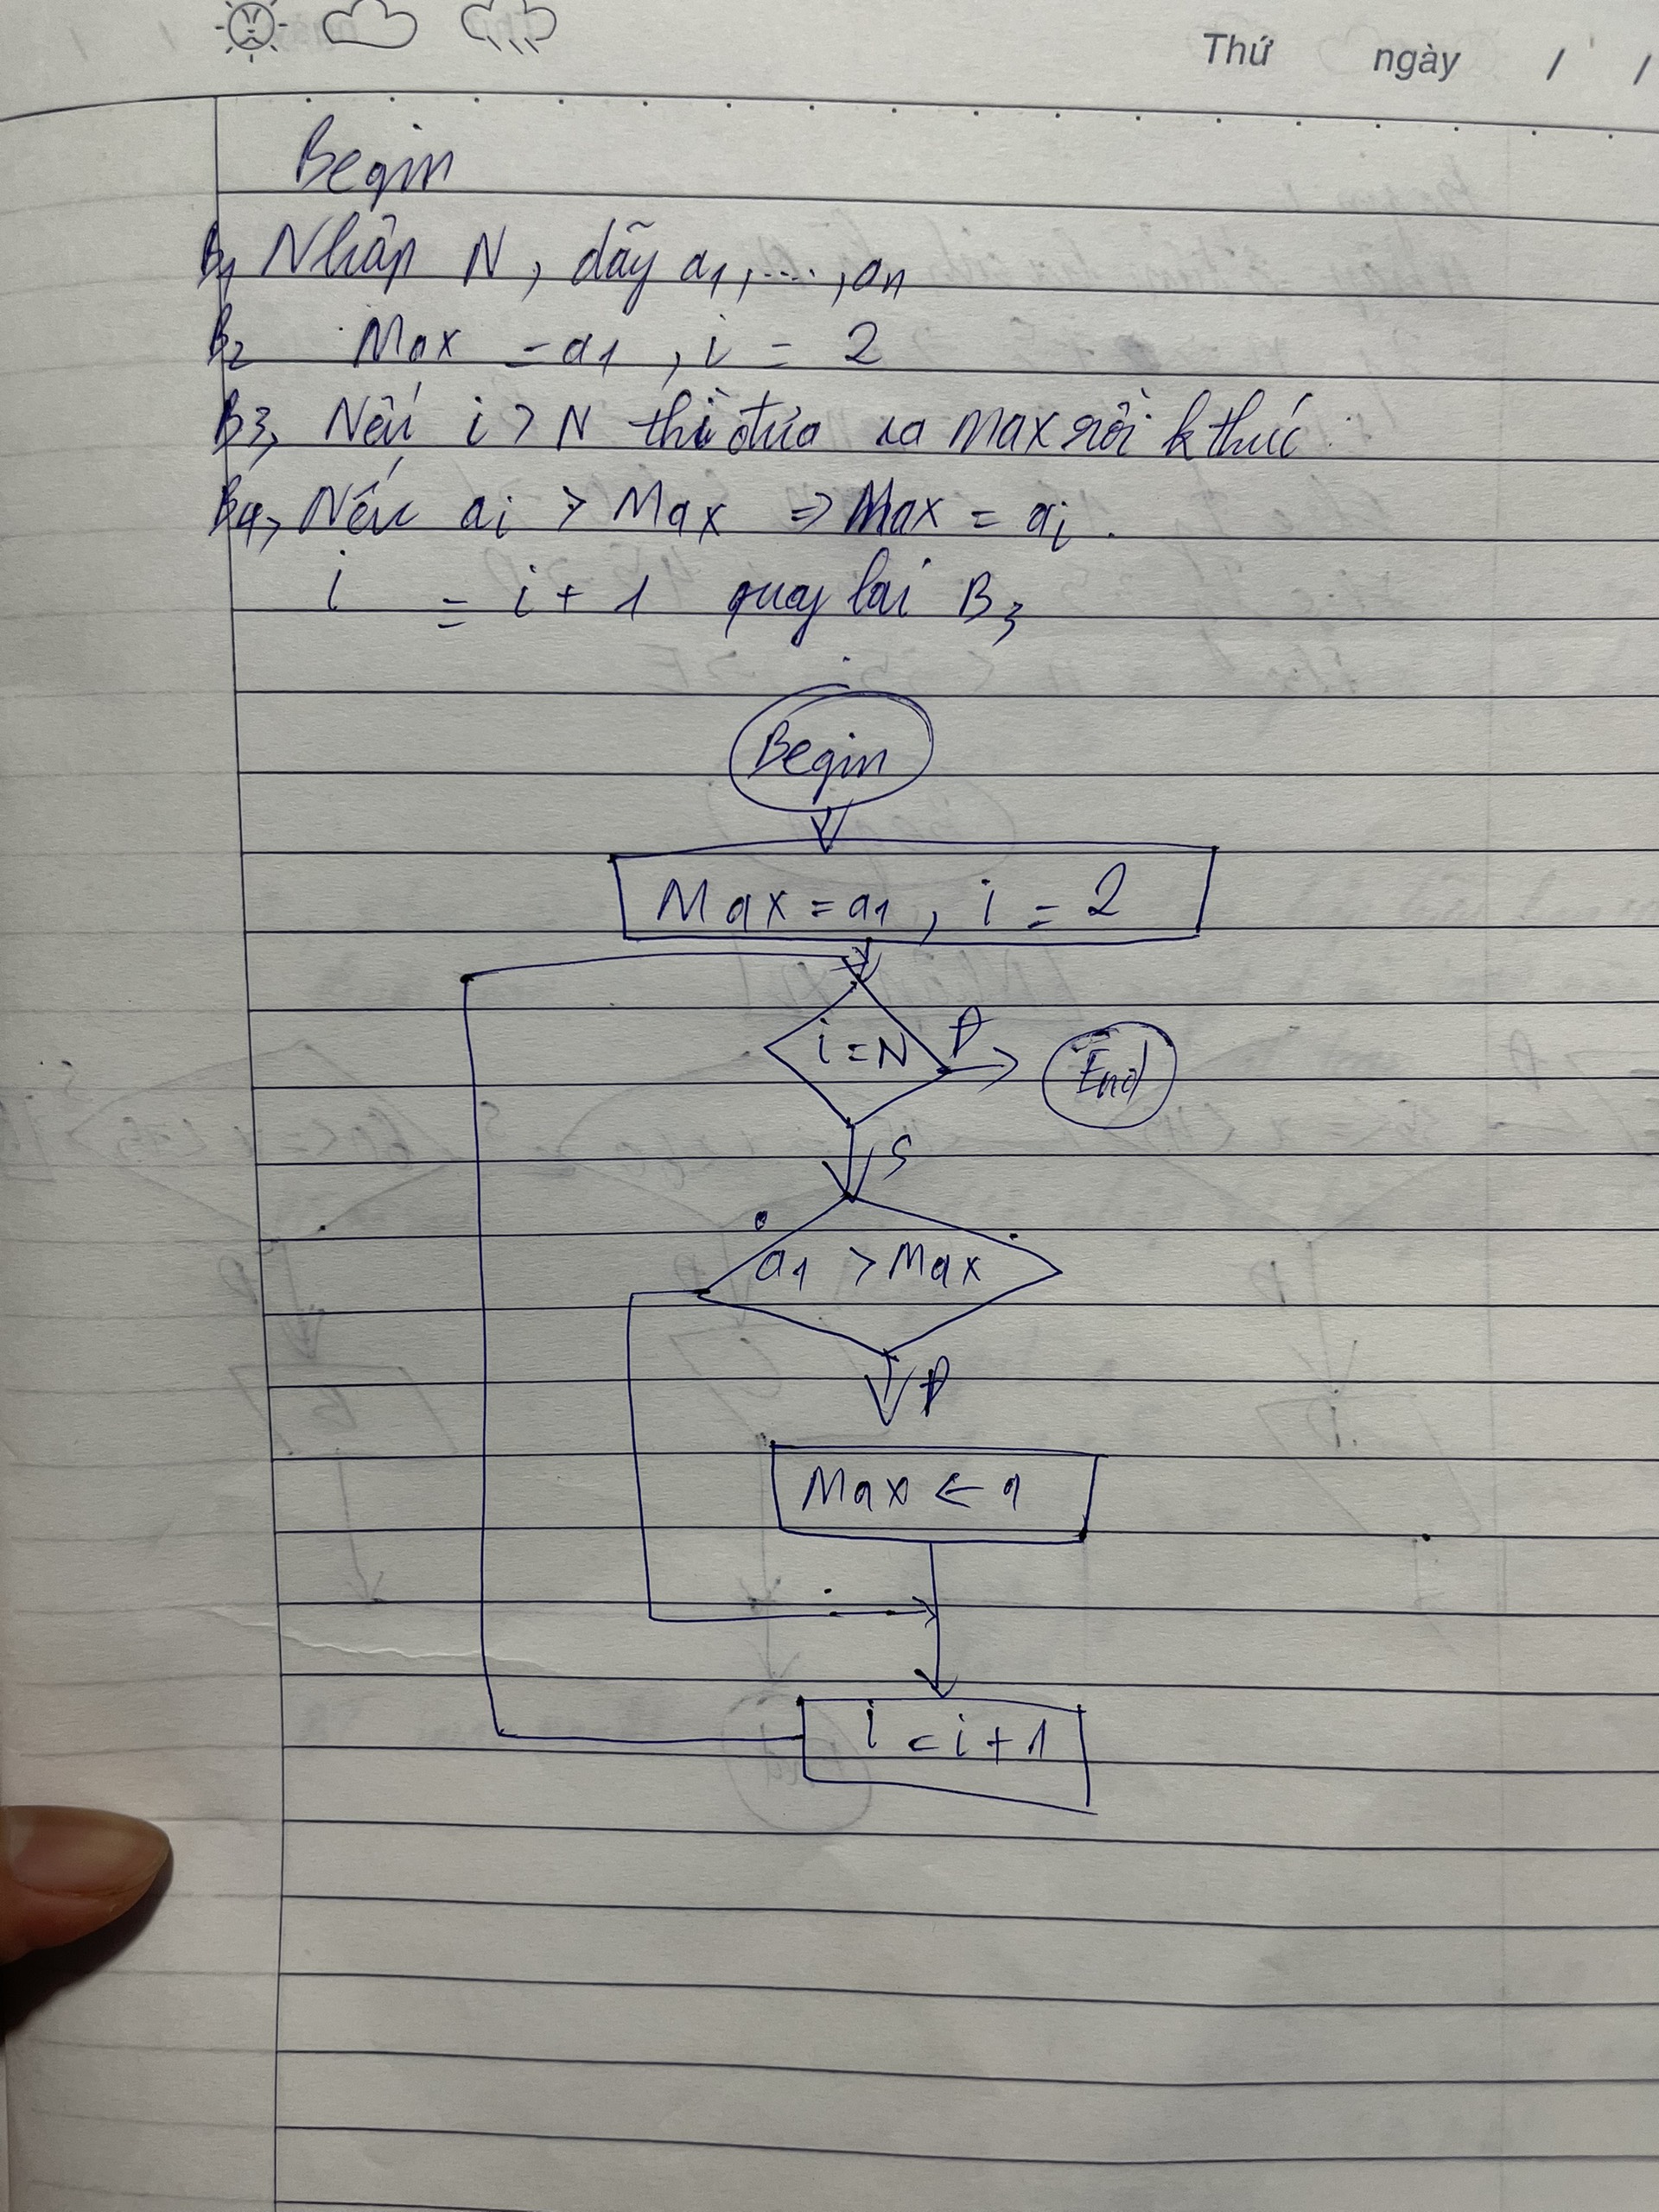 Thứ ngày / /
Begin
B1 Nhập N, dãy a1, ..., an
B2 Max = a1, i = 2
B3, Nếu i > N thì đưa ra max rồi k thúc
B4, Nếu ai > Max => Max = ai.
i = i + 1 quay lại B3
Begin
Max = a1, i = 2
i = N Đ End
S
a1 > Max
Đ
Max ← a
i = i + 1